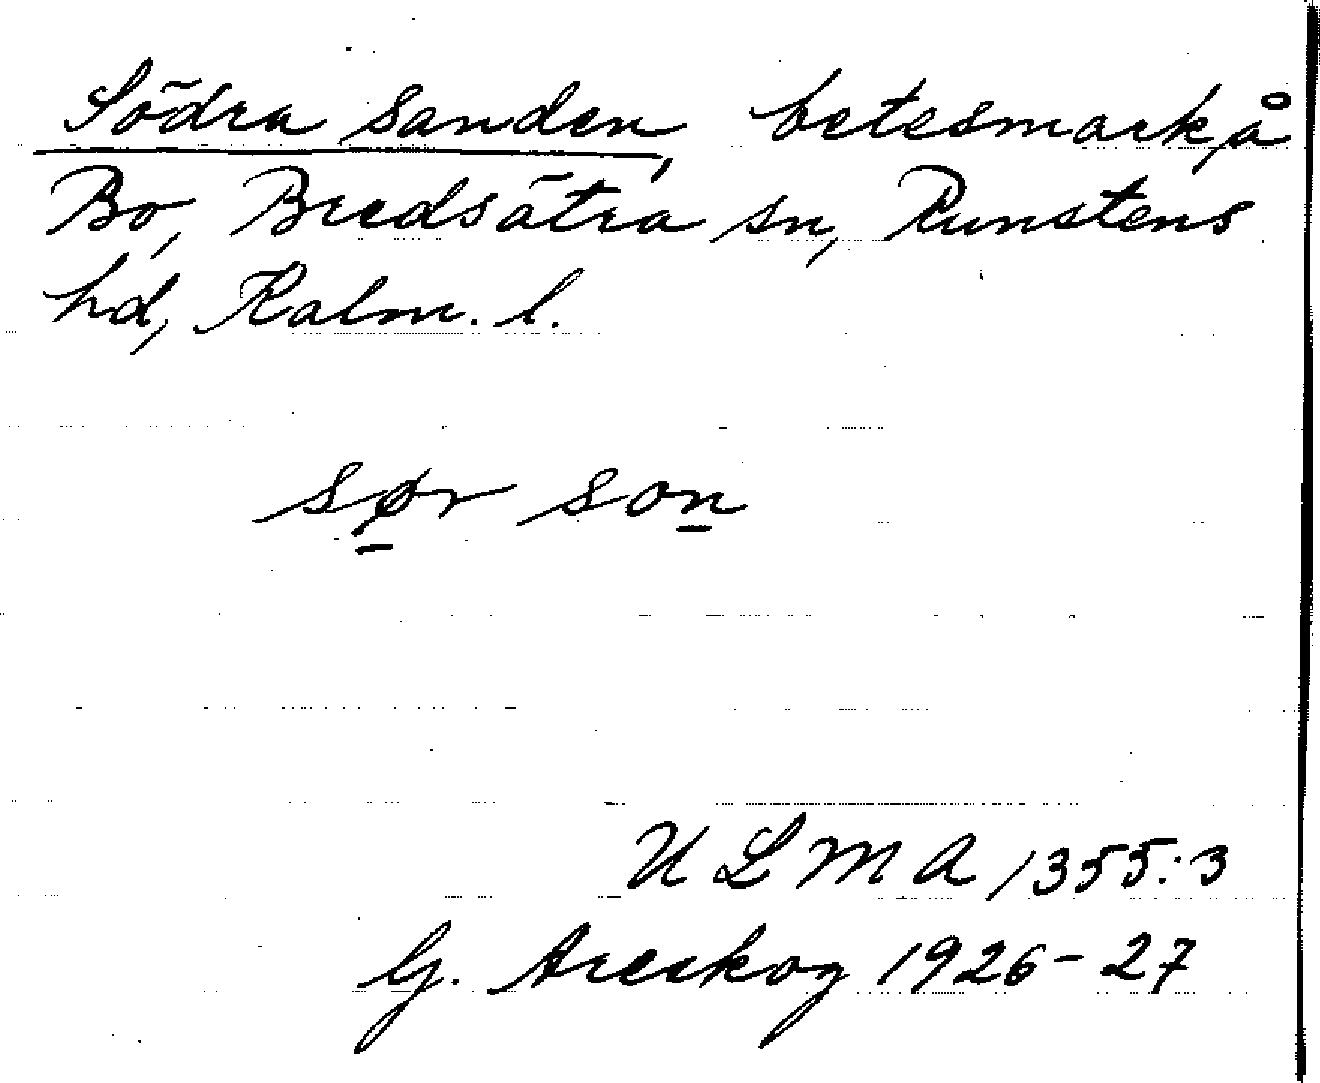 Södra sanden, betesmark å
Bo, Bredsätra sn, Runstens
hd, Kalm. l.
sør son
ULMA 1355:3
G. Areskog 1926-27